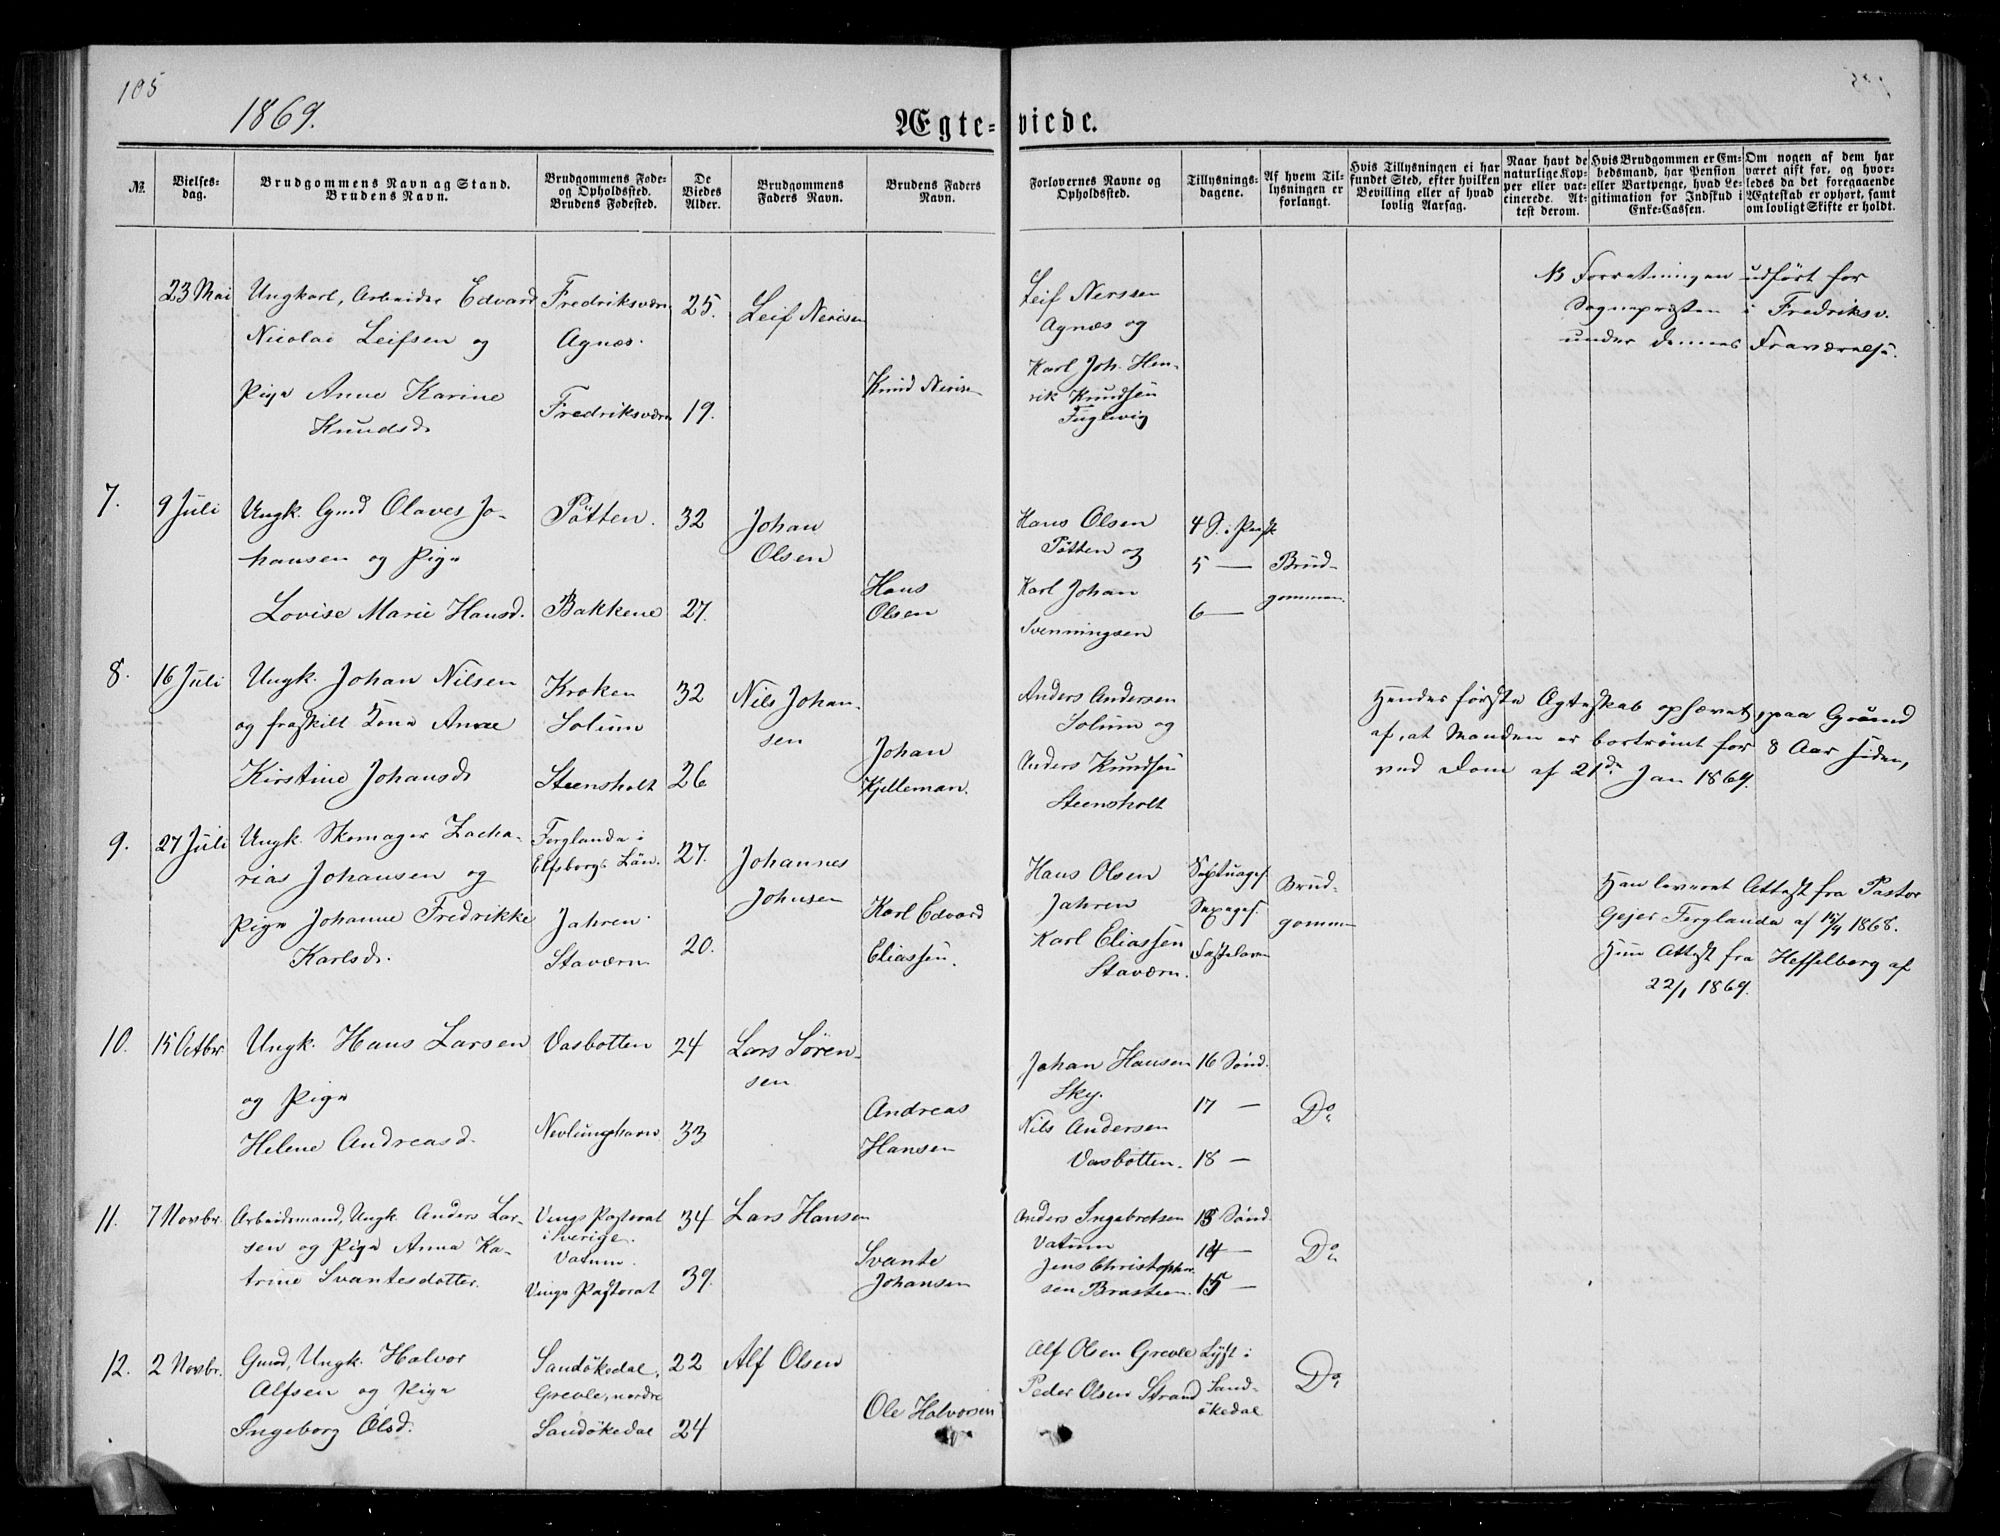 105
1869.
Ægteviede.
No.
Vielses-
dag.
Brudgommens Navn og Stand.
Brudens Navn.
Brudgommens Føde-
og Opholdssted.
Brudens Fødested.
De
Viedes
Alder.
Brudgommens
Faders Navn.
Brudens Faders
Navn.
Forlovernes Navne og
Opholdssted.
Tillysnings-
dagene.
Af hvem Til-
lysningen er
forlangt.
Hvis Tillysningen ei har
fundet Sted, efter hvilken
Bevilling eller af hvad
lovlig Aarsag.
Naar havt de
naturlige Kop-
per eller vac-
cinerede. At-
test derom.
Hvis Brudgommen er Em-
bedsmand, har Pension
eller Vartpenge, hvad Le-
gitimation for Indskud i
Enke-Cassen.
Om nogen af dem har
været gift før, og hvor-
ledes da det foregaaende
Ægteskab er ophørt, samt
om lovligt Skifte er holdt.
23 Mai
Ungkarl, Arbeider Edvard
Nicolai Leifsen og
Pige Anne Karine
Knudsd.
Fredriksværn
Agnæs.
Fredriksværn
25.
19.
Leif Nerisen
Knud Nerisen
Leif Nerssen
Agnæs og
Karl Joh. Hen-
rik Knudsen
Fuglevig
NB Forretningen udført for
Sognepræsten i Fredriksv.
under dennes Fraværelse.
7.
9 Juli
Ungk. Gmd Olaves Jo-
hansen og Pige
Lovise Marie Hansd.
Pøtten.
Bakkene
32
27.
Johan
Olsen
Hans
Olsen
Hans Olsen
Pøtten og
Karl Johan
Svenningsen
4 S. i Paask
5 —
6 —
Brud-
gommen
8.
16 Juli
Ungk. Johan Nilsen
og fraskilt Kone Anne
Kirstine Johansd.
Kroken
Solum
Steensholt
32
26
Nils Johan-
sen
Johan
Kjelleman.
Anders Andersen
Solum og
Anders Knudsen
Steensholt
Hendes første Ægteskab ophævet, paa Grund
af, at Manden er bortrømt for 8 Aar siden,
ved Dom af 21de Jan 1869.
9.
27 Juli
Ungk. Skomager Zacha-
rias Johansen og
Pige Johanne Fredrikke
Karlsd.
Ferglanda i
Elfsborgs Län.
Jahren.
Staværn
27.
20.
Johannes
Johnsen
Karl Edvard
Eliassen.
Hans Olsen
Jahren
Karl Eliassen
Staværn.
Septuages.
Sexages.
Fastelavn
Brud-
gommen
Han leveret Attest fra Pastor
Gejer Ferglanda af 15/4 1868.
Hun Attest fra Hesselberg af
22/1 1869.
10.
15 Octbr.
Ungk. Hans Larsen
og Pige
Helene Andreasd.
Vasbotten
Nevlunghavn
24
33
Lars Søren-
sen
Andreas
Hansen
Johan Hansen
Sky.
Nils Andersen
Vasbotten.
16 Sønd.
17 —
18 —
Do
11.
7 Novbr.
Arbeidsmand, Ungk. Anders Lar-
sen og Pige Anna Ka-
trine Svantesdotter.
Vings Pastorat
i Sverige.
Vatum.
Vings Pastorat
34
39.
Lars Hansen
Svante
Johansen
Anders Ingebretsen
Vatum
Jens Christopher-
sen Brasteen.
13 Sønd.
14 —
15 —
Do
12.
2 Novbr.
Gmd, Ungk. Halvor
Alfsen og Pige
Ingeborg Olsd.
Sandøkedal,
Grevle, nordre
Sandøkedal
22
24
Alf Olsen
Ole Halvorsen
Alf Olsen Grevle
Peder Olsen Strand
Lyst i
Sand-
økedal
Do